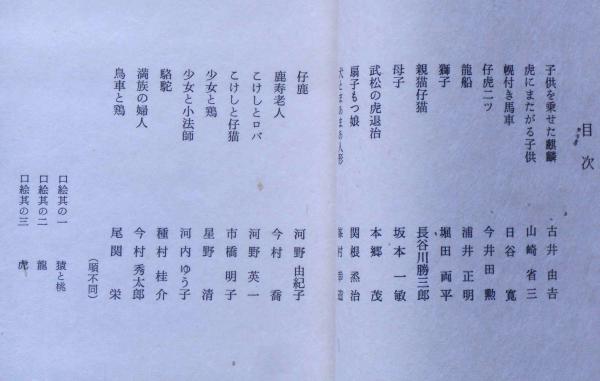 目次
子供を乗せた麒麟　古井由吉
虎にまたがる子供　山崎省三
幌付き馬車　日谷寛
仔虎二ツ　今井田勲
龍船　浦井正明
獅子　堀田両平
親猫仔猫　長谷川勝三郎
母子　坂本一敏
武松の虎退治　本郷茂
扇子もつ娘　関根烝治
人形
仔鹿　河野由紀子
鹿寿老人　今村喬
こけしとロバ　河野英一
こけしと仔猫　市橋明子
少女と鶏　星野清
少女と小法師　河内ゆう子
駱駝　種村桂介
満族の婦人　今村秀太郎
鳥車と鶏　尾関栄
（順不同）
口絵其の一　猿と桃
口絵其の二　龍
口絵其の三　虎